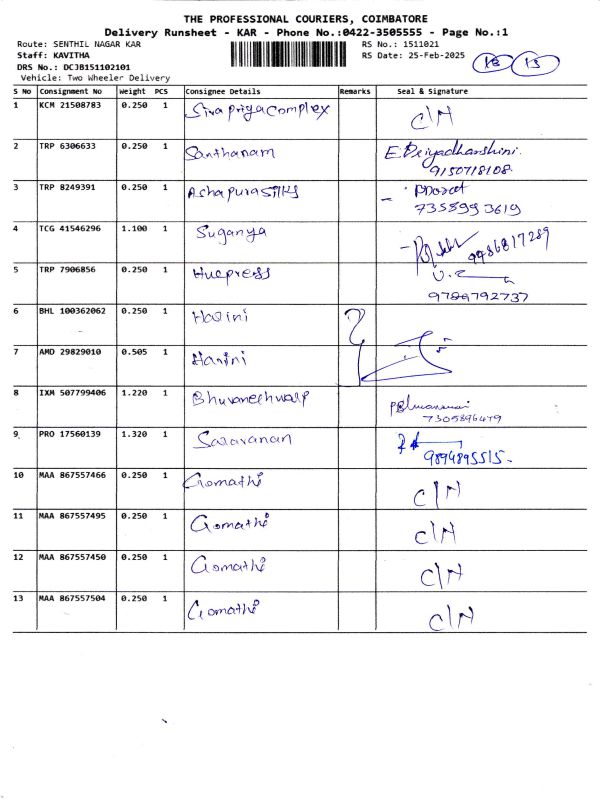 THE PROFESSIONAL COURIERS, COIMBATORE
Delivery Runsheet - KAR - Phone No.:0422-3505555 - Page No.:1
Route: SENTHIL NAGAR KAR
RS No.: 1511021
Staff: KAVITHA
RS Date: 25-Feb-2025
DRS No.: DC3B151102101
Vehicle: Two Wheeler Delivery
13
S No Consignment No Weight PCS Consignee Details Remarks Seal & Signature
1 KCM 21508783 0.250 1 Sivapriya complex C/N
2 TRP 6306633 0.250 1 Santhanam E. Priyadharshini
9150718108
3 TRP 8249391 0.250 1 Ashapura silks - Bharat
7358993619
4 TCG 41546296 1.100 1 Suganya 9486817289
5 TRP 7906856 0.250 1 Huepress
9789792737
6 BHL 100362062 0.250 1 Harini
7 AMD 29829010 0.505 1 Harini
8 IXM 507799406 1.220 1 Bhuvaneshwari
7305896479
9 PRO 17560139 1.320 1 Saravanan
9894895515
10 MAA 867557466 0.250 1 Gomathi C/N
11 MAA 867557495 0.250 1 Gomathi C/N
12 MAA 867557450 0.250 1 Gomathi C/N
13 MAA 867557504 0.250 1 Gomathi C/N